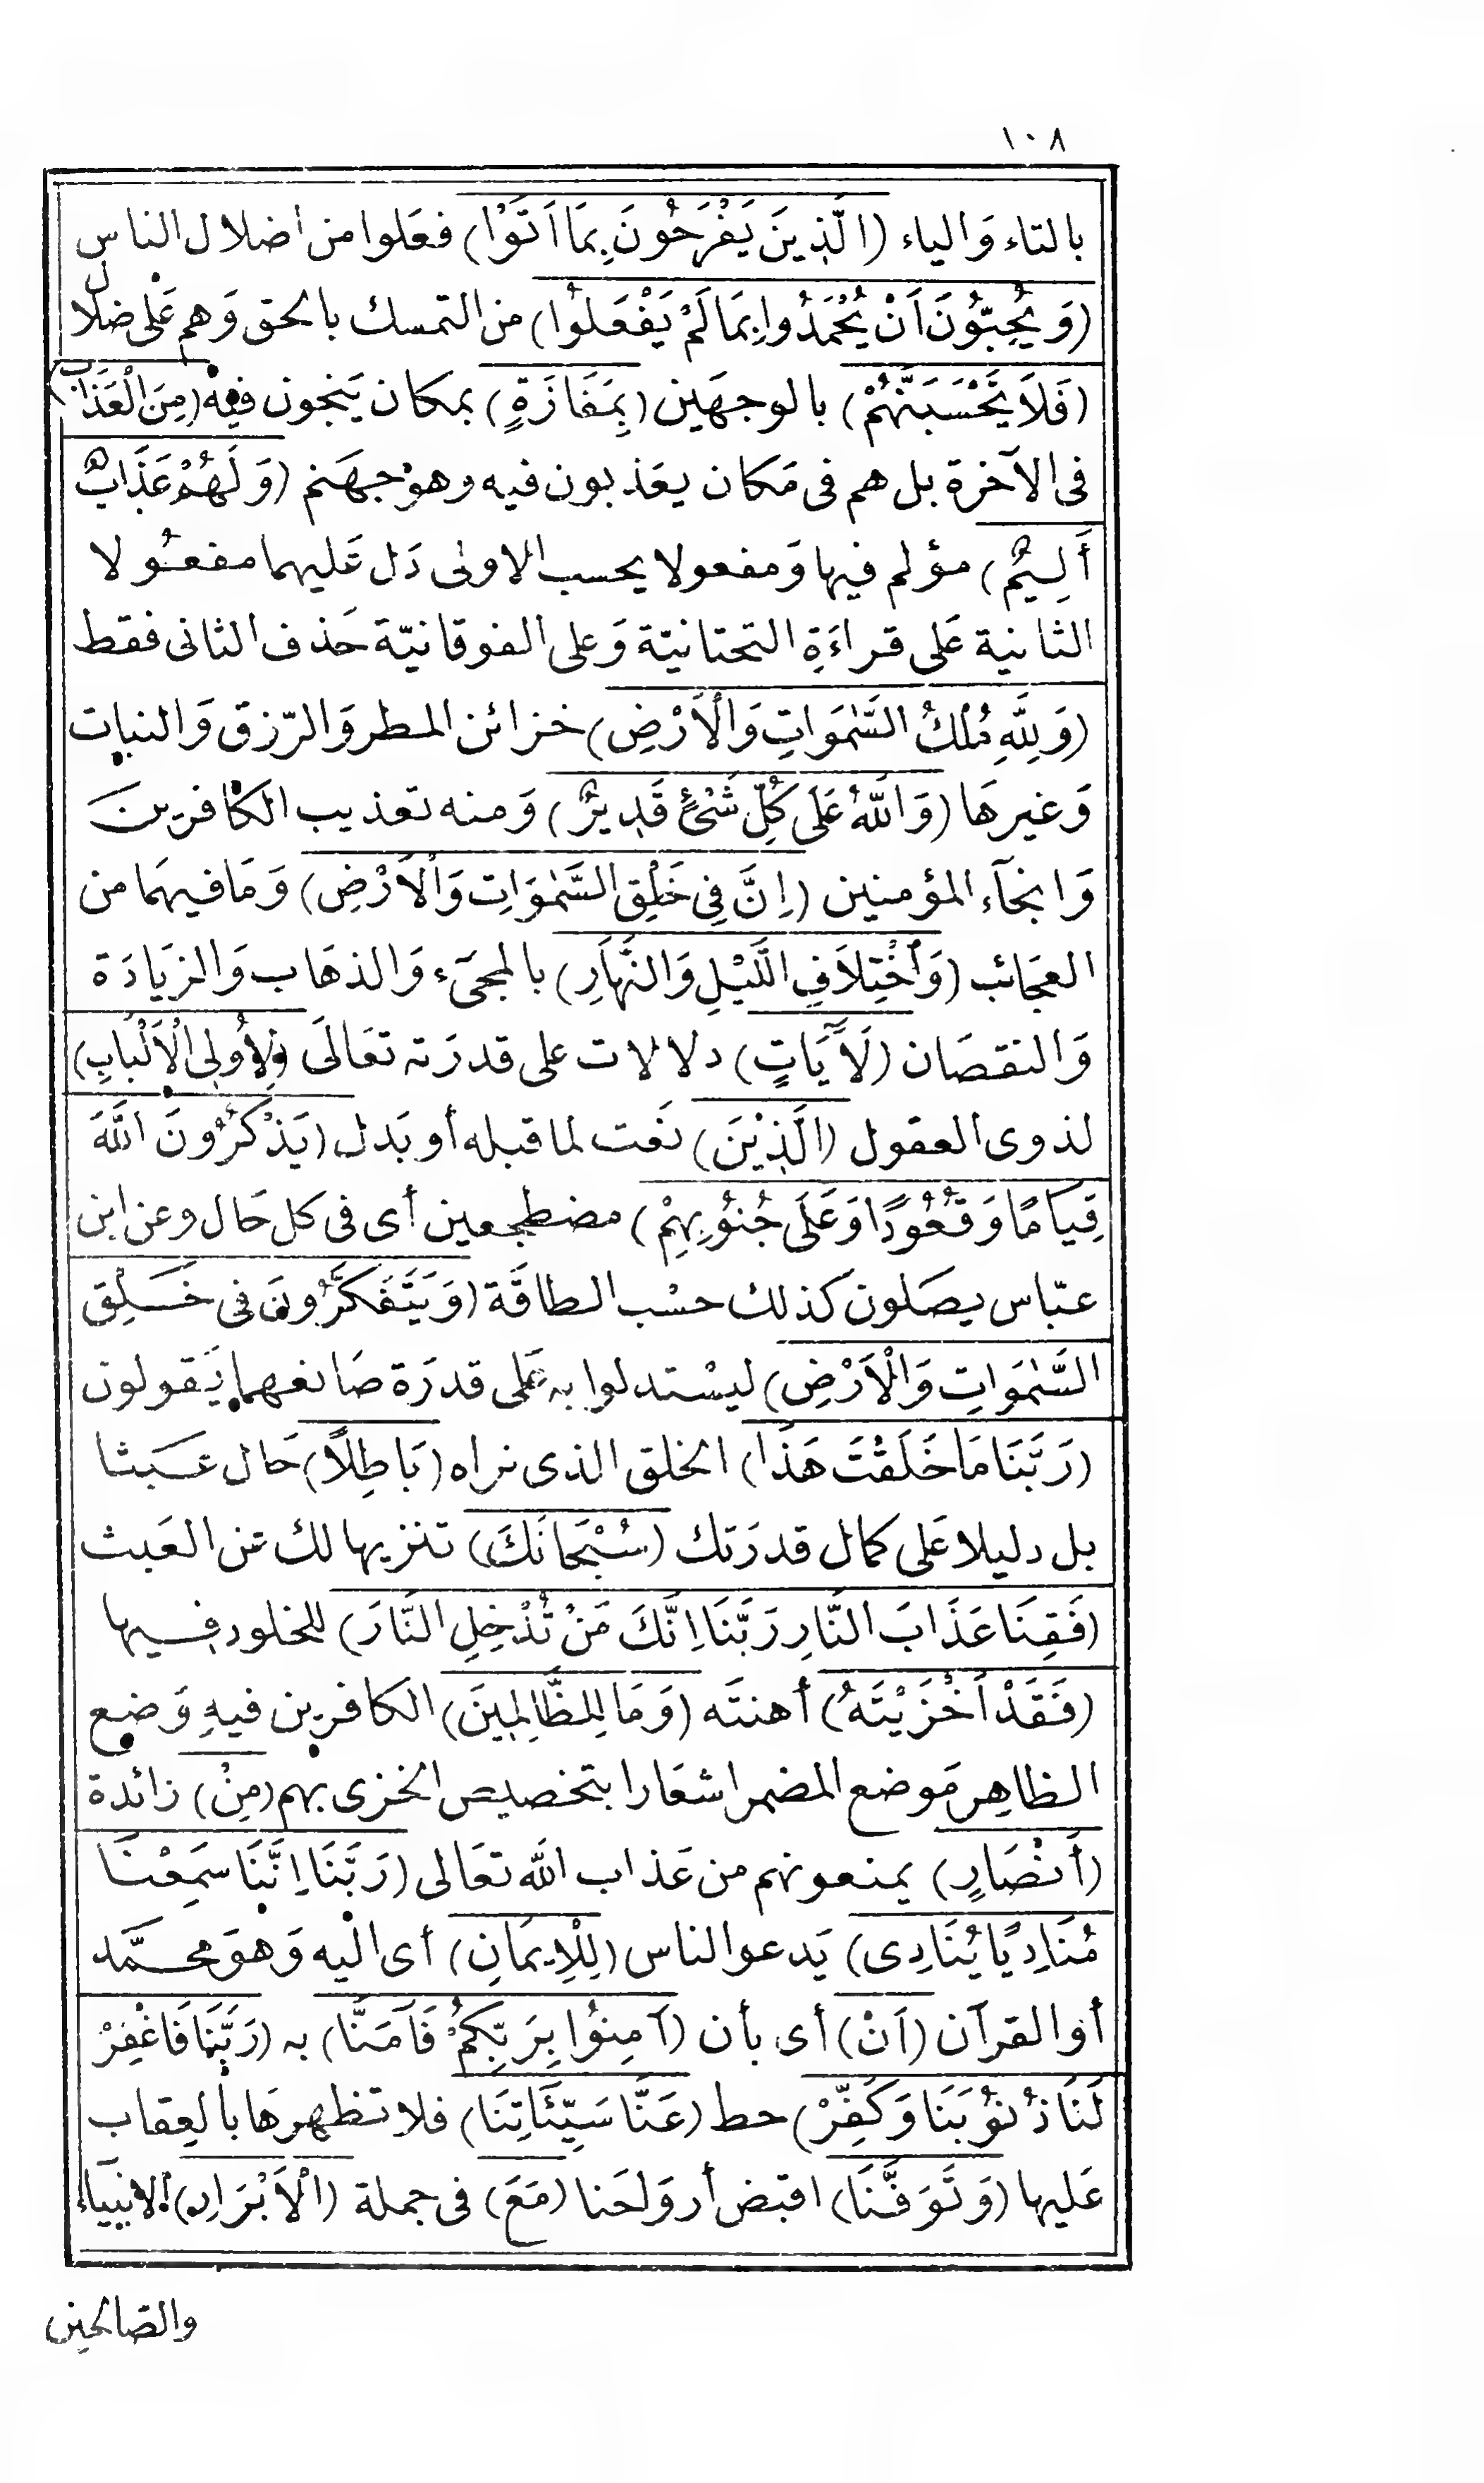 ١٠٨
بالتاء وَالياء (الَّذِينَ يَفْرَحُونَ بِمَا اَتَوْا) فعَلوا من اضلال الناس
(وَيُحِبُّونَ اَنْ يُحْمَدُوا بِمَا لَمْ يَفْعَلُوا) من التمسك بالحق وَهم عَلى ضلال
(فَلاَ يَحْسَبَنَّهُمْ) بالوجهَين (بِمَفَازَةٍ) بمكان يَنجون فيه (مِنَ الْعَذَابِ)
فى الآخرة بل هم فى مَكان يعَذبون فيه وهو جهَنم (وَلَهُمْ عَذَابٌ
أَلِيمٌ) مؤلم فيها وَمفعولا يحسب الاولى دَل عَليهما مفعُولا
الثانية عَلى قراءَةِ التحتانيّة وَعلى الفوقانيّة حَذف الثانى فقط
(وَلِلَّهِ مُلْكُ السَّمٰوَاتِ وَالْاَرْضِ) خزائن المطر وَالرّزق وَالنبات
وَغيرهَا (وَاللَّهُ عَلَى كُلِّ شَىْءٍ قَدِيرٌ) وَمنه تعَذيب الكافرين
وَانجآء المؤمنين (اِنَّ فِى خَلْقِ السَّمٰوَاتِ وَالْاَرْضِ) وَمَا فيهمَا من
العجَائب (وَاخْتِلاَفِ اللَّيْلِ وَالنَّهَارِ) بالمجىء وَالذهَاب وَالزيَادَة
وَالنقصَان (لَآيَاتٍ) دلالات على قدرَته تعَالَى (لِأُولِى الْاَلْبَابِ)
لذوى العقول (الَّذِيْنَ) نعَت لما قبله أو بَدل (يَذْكُرُونَ اللَّهَ
قِيَامًا وَقُعُودًا وَعَلَى جُنُوبِهِمْ) مضطجعين أى فى كل حَال وعن ابن
عبّاس يصَلون كذلك حسْب الطاقَة (وَيَتَفَكَّرُونَ فى خَلْقِ
السَّمٰوَاتِ وَالْاَرْضِ) ليسْتدلوا به عَلى قدرَة صَانعهما يَقولون
(رَبَّنَا مَا خَلَقْتَ هَذَا) الخلق الذى نراه (بَاطِلًا) حَال عَبثا
بل دليلا عَلى كمال قدرَتك (سُبْحَانَكَ) تنزيها لك عَن العَبث
(فَقِنَا عَذَابَ النَّارِ رَبَّنَا اِنَّكَ مَنْ تُدْخِلِ النَّارَ) للخلود فيها
(فَقَدْ اَخْزَيْتَهُ) أهنتَه (وَمَا لِلظَّالِمِينَ) الكافرين فيهِ وَضع
الظاهِر مَوضع المضمر اشعَارا بتخصيص الخزى بهم (مِنْ) زائدة
(أَنْصَارٍ) يمنعونهم من عَذاب الله تعَالى (رَبَّنَا اِنَّنَا سَمِعْنَا
مُنَادِيًا يُنَادِى) يَدعو الناس (لِلْاِيمَانِ) أى اليه وَهوَ محمَّد
أو القرآن (اَنْ) أى بأن (آمِنُوا بِرَبِّكُمْ فَآمَنَّا) به (رَبَّنَا فَاغْفِرْ
لَنَا ذُنُوبَنَا وَكَفِّرْ) حط (عَنَّا سَيِّئَاتِنَا) فلا تظهرهَا بالعِقاب
عَليها (وَتَوَفَّنَا) اقبَض أروَاحَنا (مَعَ) فى جملة (الْاَبْرَارِ) الانبيَاء
والصَالحين